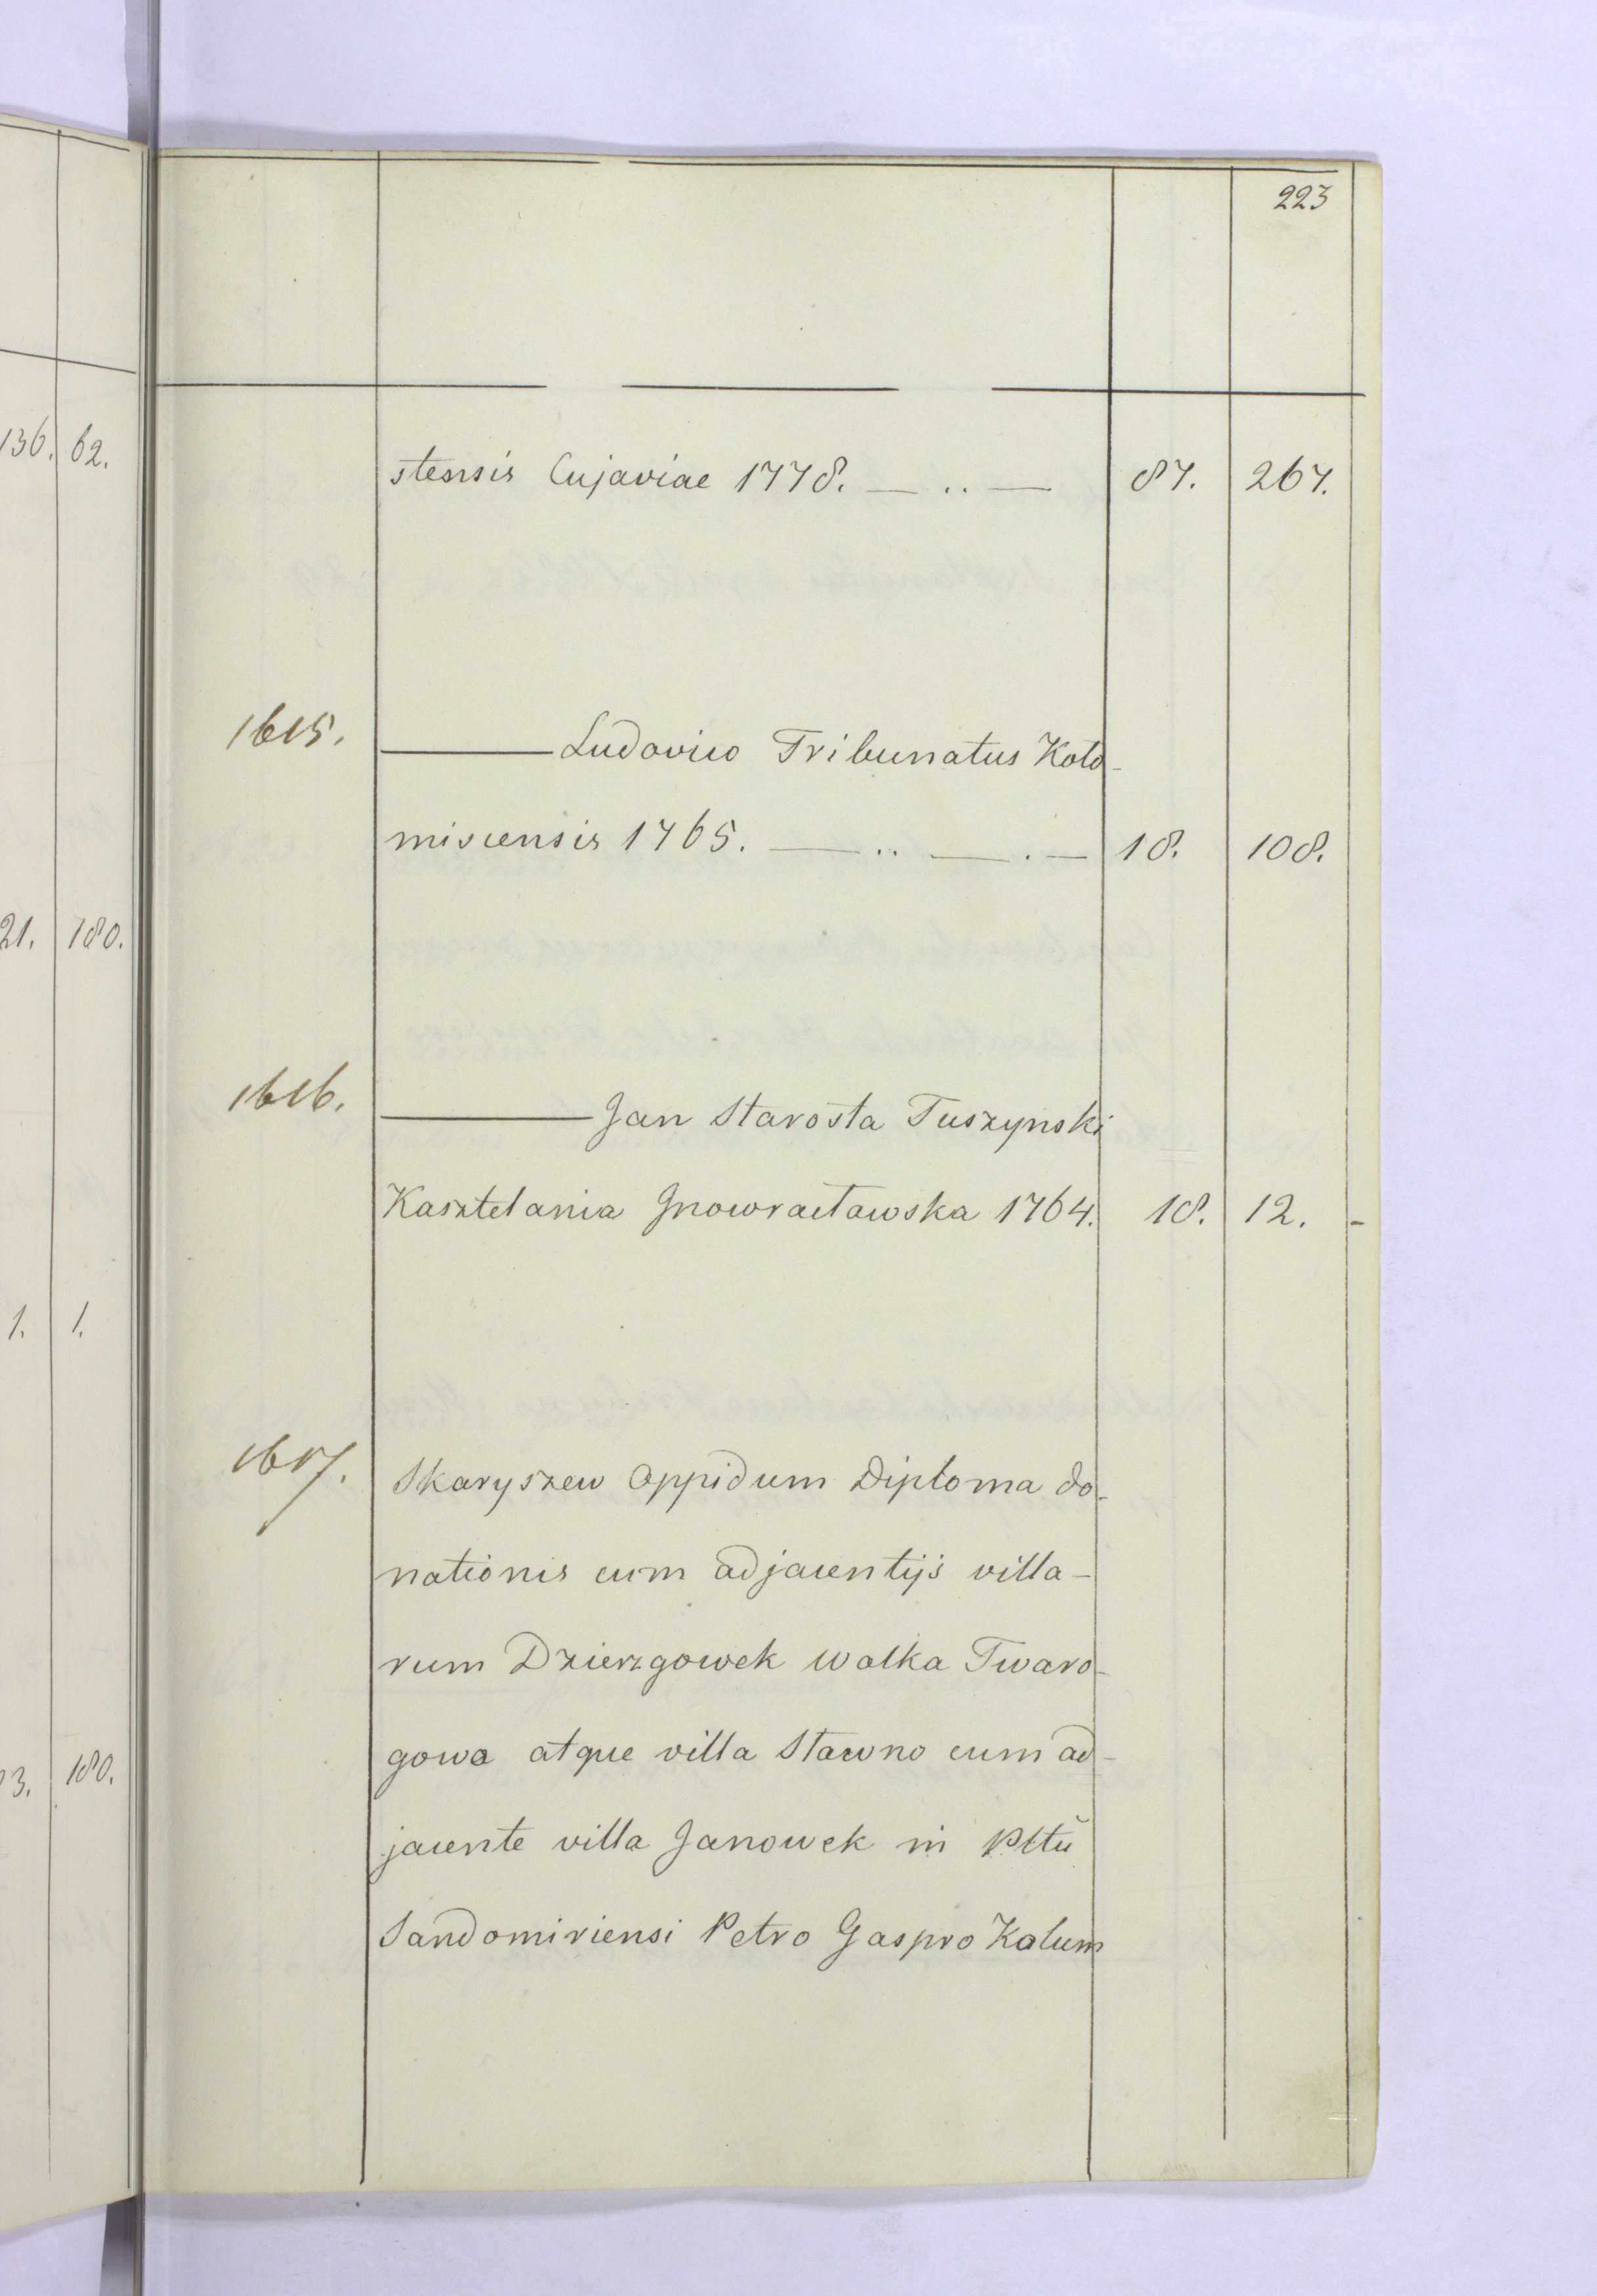 223
136. 62.
stensis Cujaviae 1778. — .. — 87. 267.
1615. ——— Ludovico Tribunatus Koło-
miscensis 1765. — .. — . — 18. 108.
21. 180.
1616. ——— Jan Starosta Tuszynski
Kasztelania Jnowracławska 1764. 18. 12. -
1. 1.
1617. Skaryszew Oppidum Diploma do-
nationis cum adjacentijs villa-
rum Dzierzgowek Wolka Twaro-
gowa atque villa Stawno cum ad-
3. 180.
jacente villa Janowek in Pltũ
Sandomiriensi Petro Gaspro Kalum